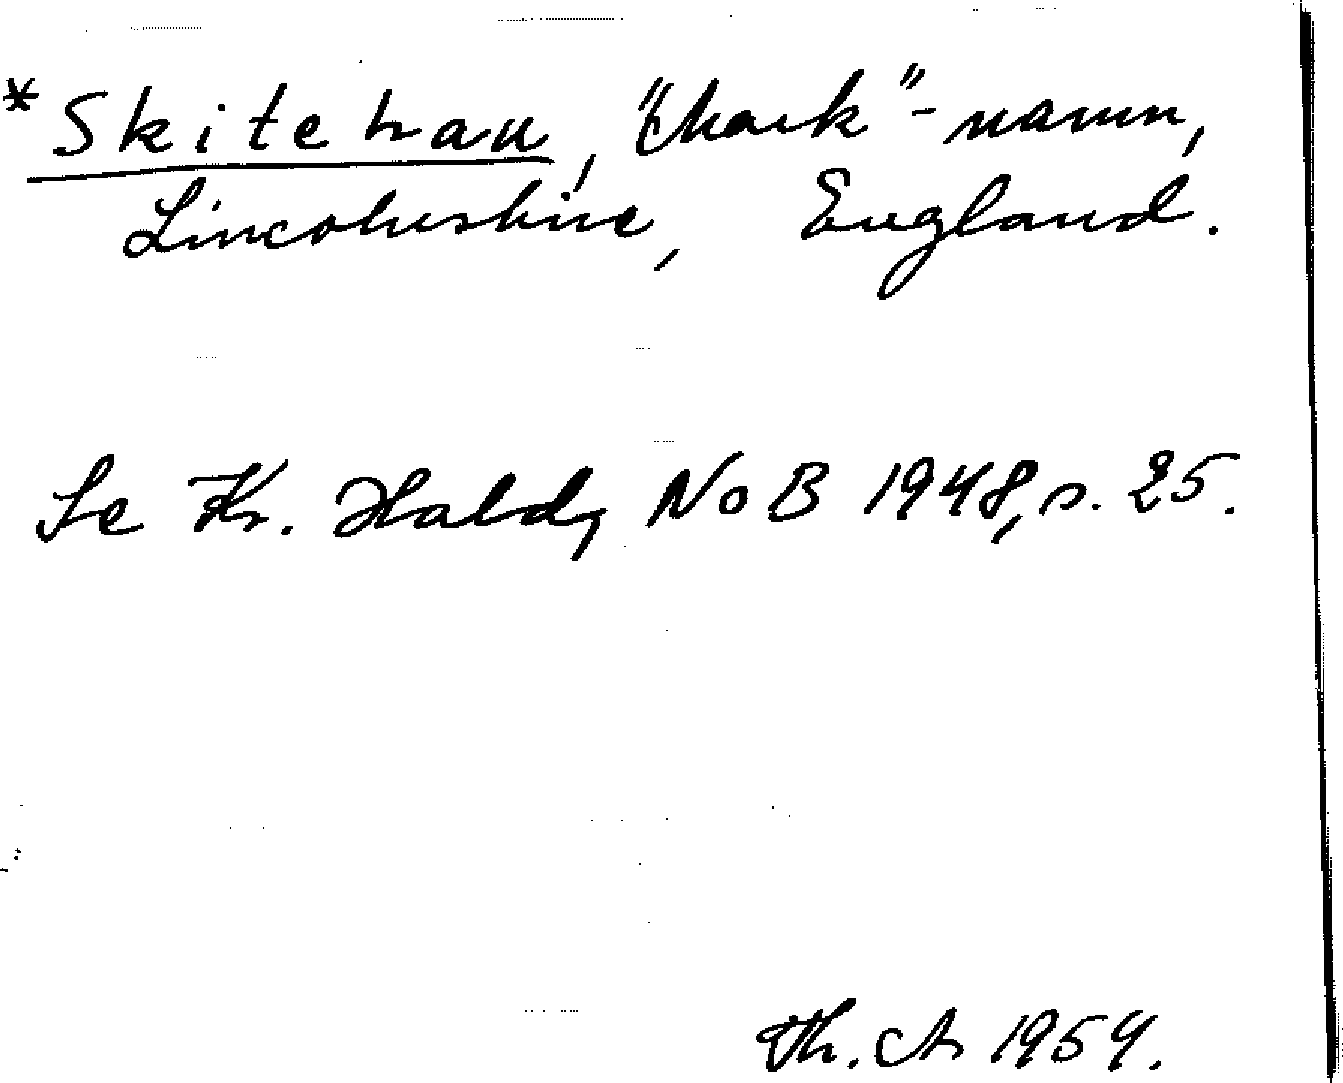 *Skitehau, "Mark"-namn,
Lincolnshire, England.
Se Kr. Hald, NoB 1948, s. 25.
Th. A 1954.